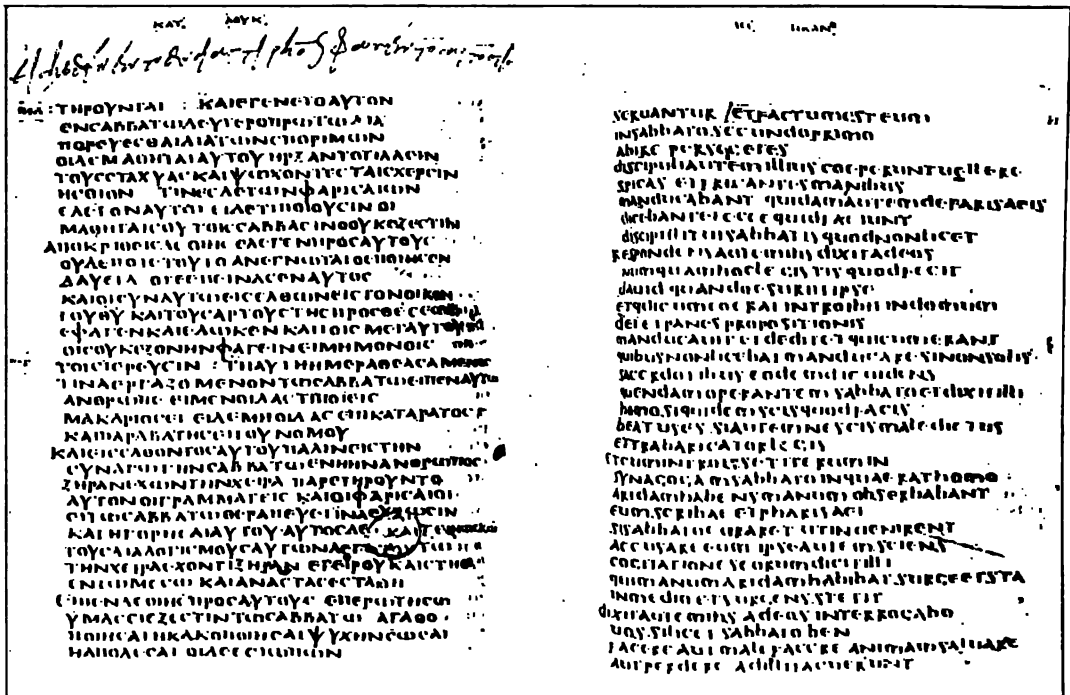 ΚΑΤ ΛΟΥΚ
ΤΗΡΟΥΝΤΑΙ : ΚΑΙΕΓΕΝΕΤΟΑΥΤΟΝ
ΕΝΣΑΒΒΑΤΩΔΕΥΤΕΡΟΠΡΩΤΩΔΙΑ
ΠΟΡΕΥΕΣΘΑΙΔΙΑΤΩΝΣΠΟΡΙΜΩΝ
ΟΙΔΕΜΑΘΗΤΑΙΑΥΤΟΥΗΡΞΑΝΤΟΤΙΛΛΕΙΝ
ΤΟΥΣΣΤΑΧΥΑΣΚΑΙΨΩΧΟΝΤΕΣΤΑΙΣΧΕΡΣΙΝ
ΗΣΘΙΟΝ ΤΙΝΕΣΔΕΤΩΝΦΑΡΙΣΑΙΩΝ
ΕΛΕΓΟΝΑΥΤΩΕΙΔΕΤΙΠΟΙΟΥΣΙΝΟΙ
ΜΑΘΗΤΑΙΣΟΥΤΟΙΣΣΑΒΒΑΣΙΝΟΟΥΚΕΞΕΣΤΙΝ
ΑΠΟΚΡΙΘΕΙΣΔΕΟΙΗΣ ΕΛΕΓΕΝΠΡΟΣΑΥΤΟΥΣ
ΟΥΔΕΠΟΤΕΤΟΥΤΟΑΝΕΓΝΩΤΑΙΟΕΠΟΙΗΣΕΝ
ΔΑΥΕΙΔ ΟΤΕΕΠΕΙΝΑΣΕΝΑΥΤΟΣ
ΚΑΙΟΙΣΥΝΑΥΤΩ ΕΙΣΕΛΘΩΝΕΙΣΤΟΝΟΙΚΟΝ
ΤΟΥΘΥ ΚΑΙΤΟΥΣΑΡΤΟΥΣΤΗΣΠΡΟΣΘΕΣΕΩΣ
ΕΦΑΓΕΝΚΑΙΕΔΩΚΕΝΚΑΙΤΟΙΣΜΕΤΑΥΤΟΥ
ΟΙΣΟΥΚΕΞΟΝΗΝΦΑΓΕΙΝΕΙΜΗΜΟΝΟΙΣ
ΤΟΙΣΙΕΡΕΥΣΙΝ : ΤΗΑΥΤΗΗΜΕΡΑΘΕΑΣΑΜΕΝΟΣ
ΤΙΝΑΕΡΓΑΖΟΜΕΝΟΝΤΩΣΑΒΒΑΤΩΕΙΠΕΝΑΥΤΩ
ΑΝΘΡΩΠΕ ΕΙΜΕΝΟΙΔΑΣΤΙΠΟΙΕΙΣ
ΜΑΚΑΡΙΟΣΕΙ ΕΙΔΕΜΗΟΙΔΑΣΕΠΙΚΑΤΑΡΑΤΟΣ
ΚΑΙΠΑΡΑΒΑΤΗΣΕΙΤΟΥΝΟΜΟΥ
ΚΑΙΕΙΣΕΛΘΟΝΤΟΣΑΥΤΟΥΠΑΛΙΝΕΙΣΤΗΝ
ΣΥΝΑΓΩΓΗΝΣΑΒΒΑΤΩΕΝΗΗΝΑΝΘΡΩΠΟΣ
ΞΗΡΑΝΕΧΩΝΤΗΝΧΕΙΡΑ ΠΑΡΕΤΗΡΟΥΝΤΟ
ΑΥΤΟΝΟΙΓΡΑΜΜΑΤΕΙΣ ΚΑΙΟΙΦΑΡΙΣΑΙΟΙ
ΕΙΤΩΣΑΒΒΑΤΩΘΕΡΑΠΕΥΕΙΙΝΑΕΥΡΩΣΙΝ
ΚΑΤΗΓΟΡΗΣΑΙΑΥΤΟΥ ΑΥΤΟΣΔΕ
ΤΟΥΣΔΙΑΛΟΓΙΣΜΟΥΣΑΥΤΩΝΛΕΓΕΙ
ΤΗΝΧΕΙΡΑΕΧΟΝΤΙΞΗΡΑΝ ΕΓΕΙΡΟΥΚΑΙΣΤΗΘΙ
ΕΝΤΩΜΕΣΩ ΚΑΙΑΝΑΣΤΑΣΕΣΤΑΘΗ
ΕΙΠΕΝΔΕΟΙΗΣ ΠΡΟΣΑΥΤΟΥΣ ΕΠΕΡΩΤΗΣΩ
ΥΜΑΣΕΙΕΞΕΣΤΙΝΤΩΣΑΒΒΑΤΩ ΑΓΑΘΟ
ΠΟΙΗΣΑΙΗΚΑΚΟΠΟΙΗΣΑΙΨΥΧΗΝΣΩΣΑΙ
ΗΑΠΟΛΕΣΑΙ ΟΙΔΕΕΣΙΩΠΩΝ
SEC LUCAN
SERUANTUR / ETFACTUMESTEUM
INSABBATOSECUNDOPRIMO
ABIRE PERSEGETES
DISCIPULIAUTEMILLIUS COEPERUNTUELLERE
SPICAS ETFRICANTESMANIBUS
MANDUCABANT QUIDAMAUTEMDEFARISAEIS
DICEBANTEI ECCEQUIDFACIUNT
DISCIPULITUISABBATISQUODNONLICET
RESPONDENSAUTEMIHSDIXITADEOS
NUMQUAMHOCLEGISTISQUODFECIT
DAUID QUANDOESURIITIPSE
ETQUICUMEO ET INTROIBITINDOMUM
DEI ETPANESPROPOSITIONIS
MANDUCAUITETDEDITETQUICUMERANT
QUIBUSNONLICEBATMANDUCARESINONSOLIS
SACERDOTIBUS EODEMDIEUIDENS
QUENDAMOPERANTEMSABBATOETDIXITILLI
HOMO SIQUIDEMSCISQUODFACIS
BEATUSES SIAUTEMNESCISMALEDICTUS
ETTRABARICATORLEGIS
ETCUMINTROISSETITERUMIN
SYNAGOGAMSABBATOINQUAERATHOMO
ARIDAMHABENSMANUMOBSERBABANT
EUMSCRIBAE ETPHARISAEI
SISABBATOCURARETUTINUENIRENT
ACCUSAREEUM IPSEAUTEMSCIENS
COGITATIONESEORUMDICITILLI
QUIMANUMARIDAMHABEBATSURGEETSTA
INMEDIO ETSURGENSSTETIT
DIXITAUTEMIHS ADEOS INTERROGABO
UOS SILICETSABBATOBEN
FACEREAUTMALEFACERE ANIMAMSALUARE
AUTPERDERE ADILLITACUERUNT